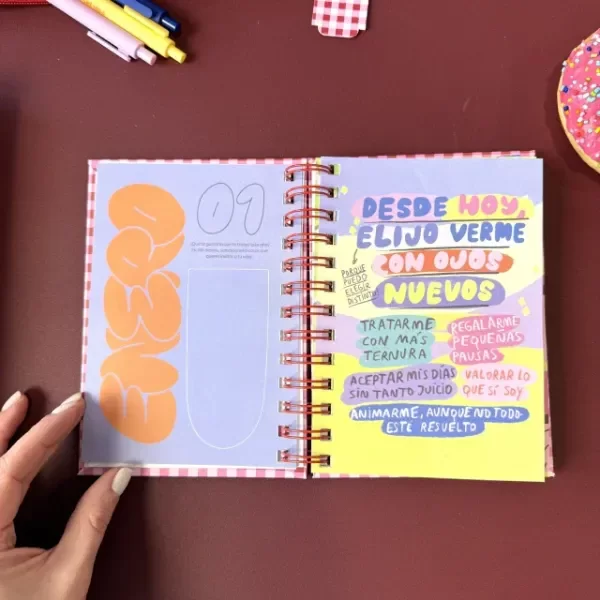 ENERO
01
DESDE HOY,
ELIJO VERME
CON OJOS
NUEVOS
PORQUE
PUEDO
ELEGIR
DISTINTO
TRATARME
CON MÁS
TERNURA
REGALARME
PEQUEÑAS
PAUSAS
ACEPTAR MIS DÍAS
SIN TANTO JUICIO
VALORAR LO
QUE SÍ SOY
ANIMARME, AUNQUE NO TODO
ESTÉ RESUELTO